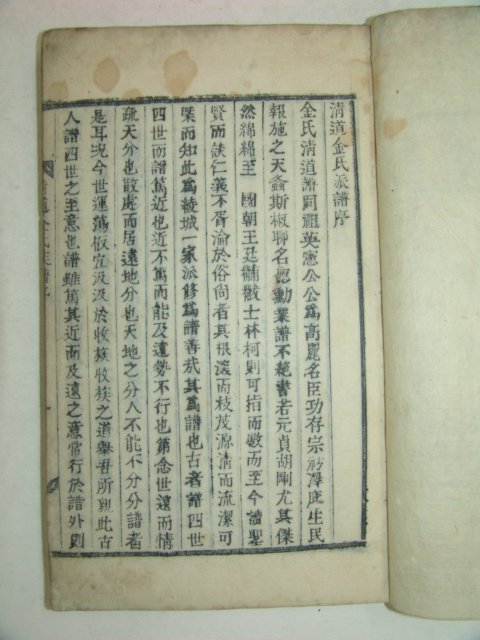 清道金氏派譜序
金氏清道譜同祖英憲公公爲高麗名臣功存宗祊澤庇生民
報施之天螽斯椒聊名德勳業譜不絶書若元貞胡剛尤其傑
然綿綿至 國朝王廷黼黻士林柯則可指而數而至今讀聖
賢而談仁義不胥淪於俗尙者其根深而枝茂源清而流潔可
槩而知此爲綾城一家派修爲譜善哉其爲譜也古者譜四世
四世而譜篤近也近不篤而能及遠勢不行也第念世遠而情
疏天分也散處而居遠地分也天地之分人不能不分分譜者
是耳况今世運蕩 宜汲汲於收族收族之道舉吾所則此古
人譜四世之至意也譜雖篤其近而及遠之意常行於譜外則
清道金氏派譜序